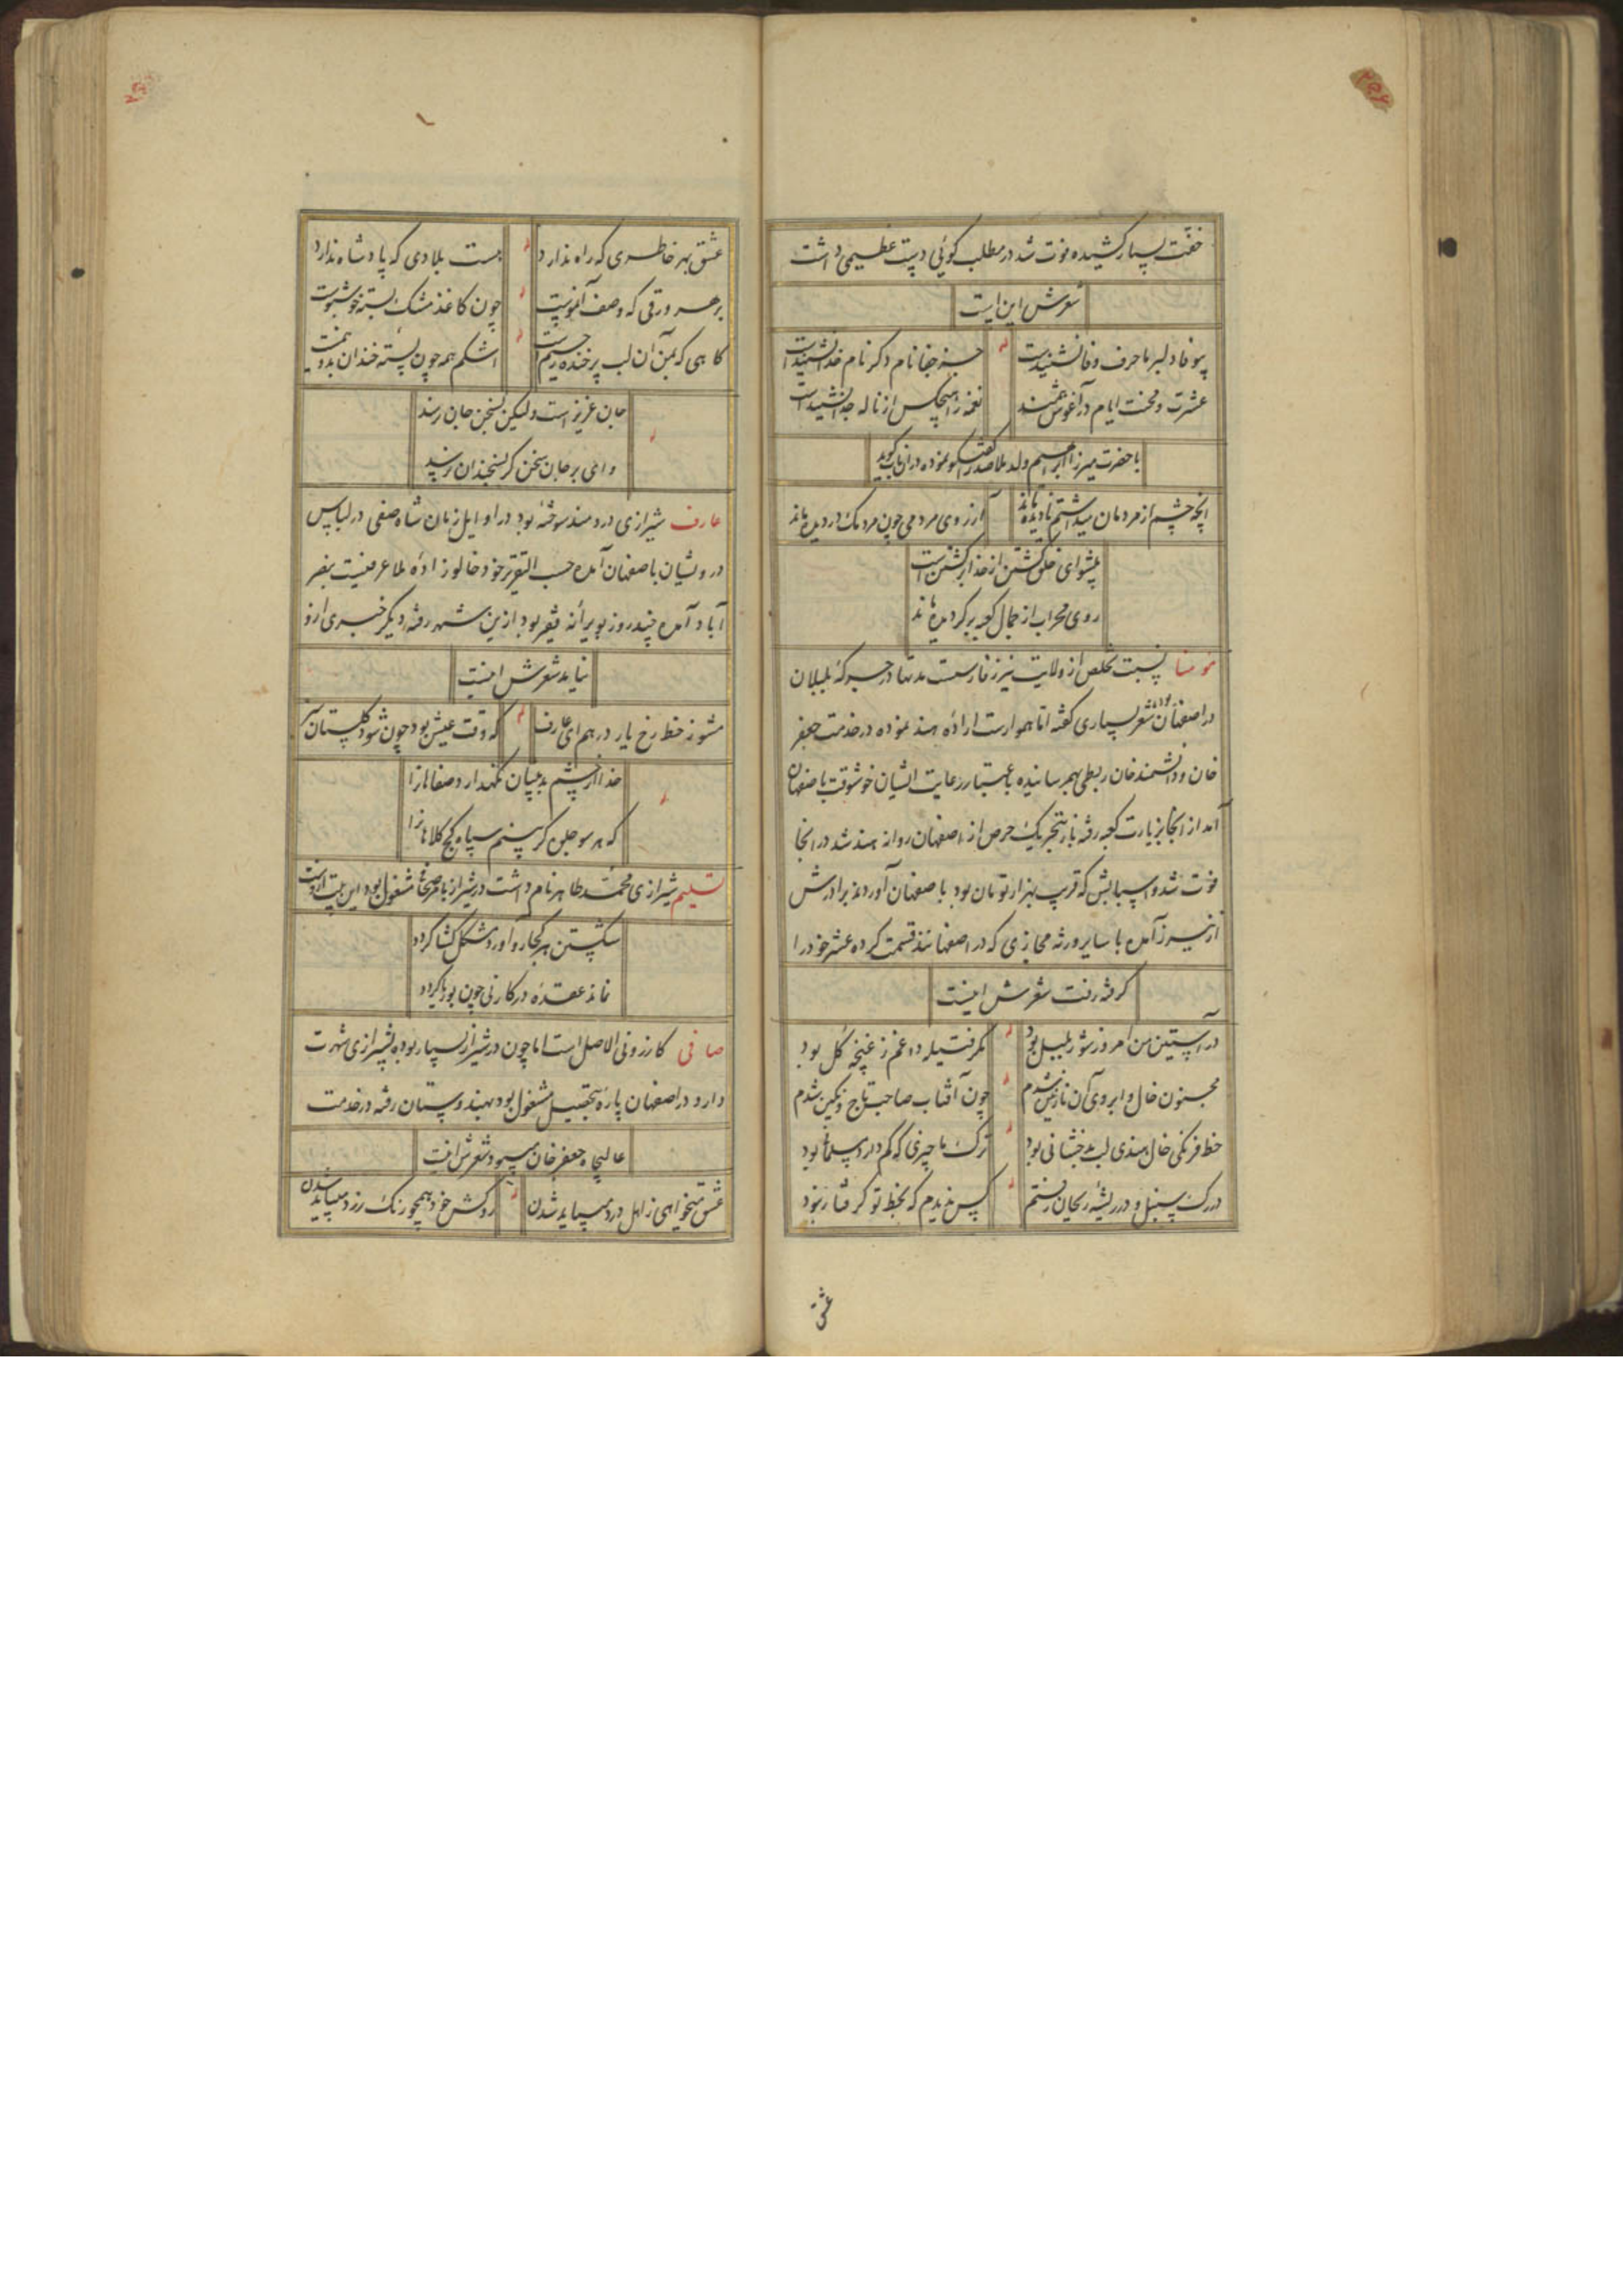 خفّت بسیار کشیده فوت شد در مطلب کوئی دست عظیمی داشت
شعرش این است
بیوفا دلبر ما حرف وفا نشنیدست
جز جفا نام دکر نام خدا نشنیدست
عشرت و محنت ایام در آغوش همند
نغمه را هیچکس از ناله جدا نشنیدست
با حضرت میرزا ابراهیم ولد ملاصدرا نموده در ان باب کوید
انچه چشم از مردمان میداشتم نادیده ماند
آرزوی مردمی چون مردمک در دیده ماند
پیشوای خلق کشتن از خدا برکشتن است
روی محراب از جمال کعبه برکردیده ماند
مؤمنا تخلص از ولایت نیریز فارست مدتها در جرکهٔ بلبلان
در اصفهان بوده شعر بسیاری کفته اما هموارست ارادهٔ هند نموده در خدمت جعفر
خان و دانشمندخان ربطی بهم رسانیده باعتبار رعایت ایشان خوشوقت باصفهان
آمد از انجا بزیارت کعبه رفته باز بتحریک حرص از اصفهان روانه هند شد در انجا
فوت شد و اسبابش که قریب بهزار تومان بود باصفهان آوردند برادرش
از نیریز آمده با سایر ورثه مجازی که در اصفهانند قسمت کرده عشر خود را
کرفته رفت شعرش اینست
در آستین من امروز شور بلبل بود
مکر فتیله داغم ز غنچهٔ کل بود
مجنون خال و ابروی آن نازنین شدم
چون آفتاب صاحب تاج و نکین شدم
خط فرنکی خال هندی لب بدخشانی بود
ترک ما چیزی که کم دارد مسلمانی بود
در رک سنبل و در ریشهٔ ریحان رفتم
کس ندیدم که بخط تو کرفتار نبود
عشق
عشق بهر خاطری که راه ندارد
هست بلادی که پادشاه ندارد
بر هر ورقی که وصف آنموست
چون کاغذ مشک بسته خوشبوست
کاهی که بمن آن لب پر خنده
اشکم همه چون پسته خندان
جان عزیز است ولیکن بسخن جان نرسد
وای بر جان سخن کر بسخندان نرسد
عارف شیرازی دردمند سوخته بود در اوایل زمان شاه صفی در لباس
درویشان باصفهان آمده حسب التقریر خود خالوزادهٔ ملا عرفیست بنصر
آباد آمده چند روز بویرانه فقیر بود ازین شهر رفته دیکر خبری ازو
نیامد شعرش اینست
مشو ز خط رخ یار درهم ای عارف
که وقت عیش بود چون شود کلستان سبز
خدا از چشم بد بینان نکهدارد صفاهان را
که هر سو جلوه کر بینم سپاه کج کلاهان را
تسلیم شیرازی محمّد طاهر نام داشت در شیراز بامر مشغول بود این بیت ازوست
شکستن هر کجا رو آورد مشکل کشا کردد
نماند عقدهٔ در کار نی چون بوریا کردد
صافی کازرونی الاصل است اما چون در شیراز بسیار بوده بشیرازی شهرت
دارد در اصفهان پارهٔ بتحصیل مشغول بود بهندوستان رفته در خدمت
عالیجاه جعفر خان میبود شعرش اینست
عشق میخواهی ز اهل درد میباید شدن
روکش خود همچو رنک زرد میباید شدن